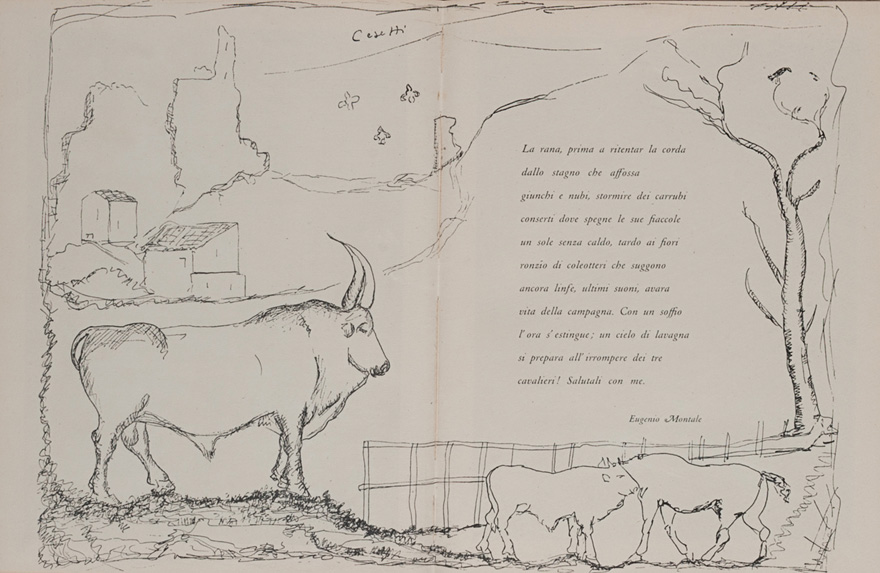 Cesetti
La rana, prima a ritentar la corda
dallo stagno che affossa
giunchi e nubi, stormire dei carrubi
conserti dove spegne le sue fiaccole
un sole senza caldo, tardo ai fiori
ronzio di coleotteri che suggono
ancora linfe, ultimi suoni, avara
vita della campagna. Con un soffio
l'ora s'estingue; un cielo di lavagna
si prepara all'irrompere dei tre
cavalieri! Salutali con me.
Eugenio Montale